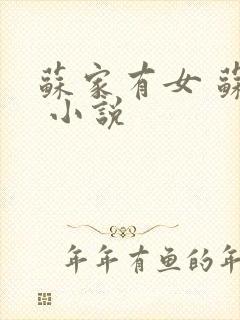 蘇家有女 蘇
小説
年年有鱼的年